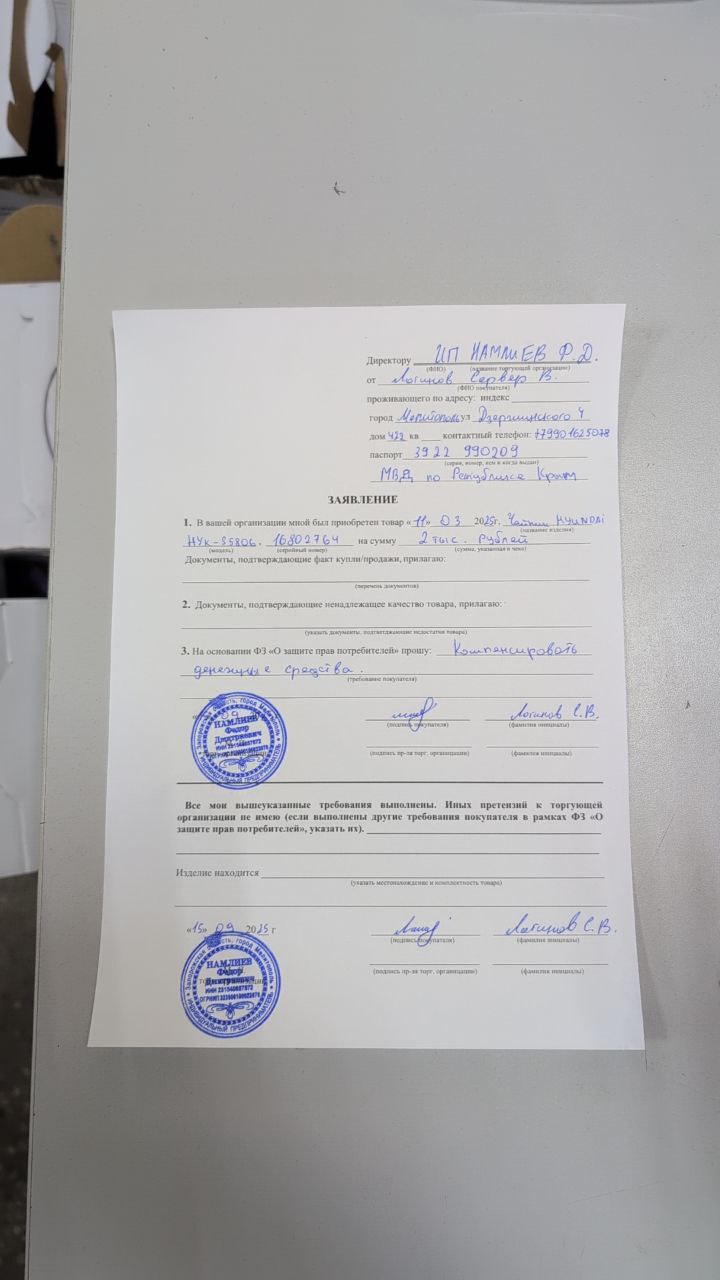 Директору ИП НАМЛИЕВ Ф.Д.
(ФИО) (название торгующей организации)
от Логинов Сервер В.
(ФИО покупателя)
проживающего по адресу: индекс
город Мелитополь ул Дзержинского 4
дом 422 кв ____ контактный телефон: +79901625078
паспорт 3922 990209
(серия, номер, кем и когда выдан)
МВД по Республике Крым
ЗАЯВЛЕНИЕ
1. В вашей организации мной был приобретен товар «11» 03 2025г. Чайник HYUNDAi
(название изделия)
HYK-S5806. 16802764 на сумму 2 тыс. рублей
(модель) (серийный номер) (сумма, указанная в чеке)
Документы, подтверждающие факт купли/продажи, прилагаю:
(перечень документов)
2. Документы, подтверждающие ненадлежащее качество товара, прилагаю:
(указать документы, подтверждающие недостатки товара)
3. На основании ФЗ «О защите прав потребителей» прошу: Компенсировать
денежные средства.
(требование покупателя)
Логинов С.В.
(подпись покупателя) (фамилия инициалы)
Запорожская область, город Мелитополь
НАМЛИЕВ
Федор
Дмитриевич
ИНДИВИДУАЛЬНЫЙ ПРЕДПРИНИМАТЕЛЬ
(подпись пр-ля торг. организации) (фамилия инициалы)
Все мои вышеуказанные требования выполнены. Иных претензий к торгующей
организации не имею (если выполнены другие требования покупателя в рамках ФЗ «О
защите прав потребителей», указать их).
Изделие находится
(указать местонахождение и комплектность товара)
«15» 09 2025 г Логинов С.В.
(подпись покупателя) (фамилия инициалы)
Запорожская область, город Мелитополь
НАМЛИЕВ
Федор
Дмитриевич
ИНДИВИДУАЛЬНЫЙ ПРЕДПРИНИМАТЕЛЬ
(подпись пр-ля торг. организации) (фамилия инициалы)